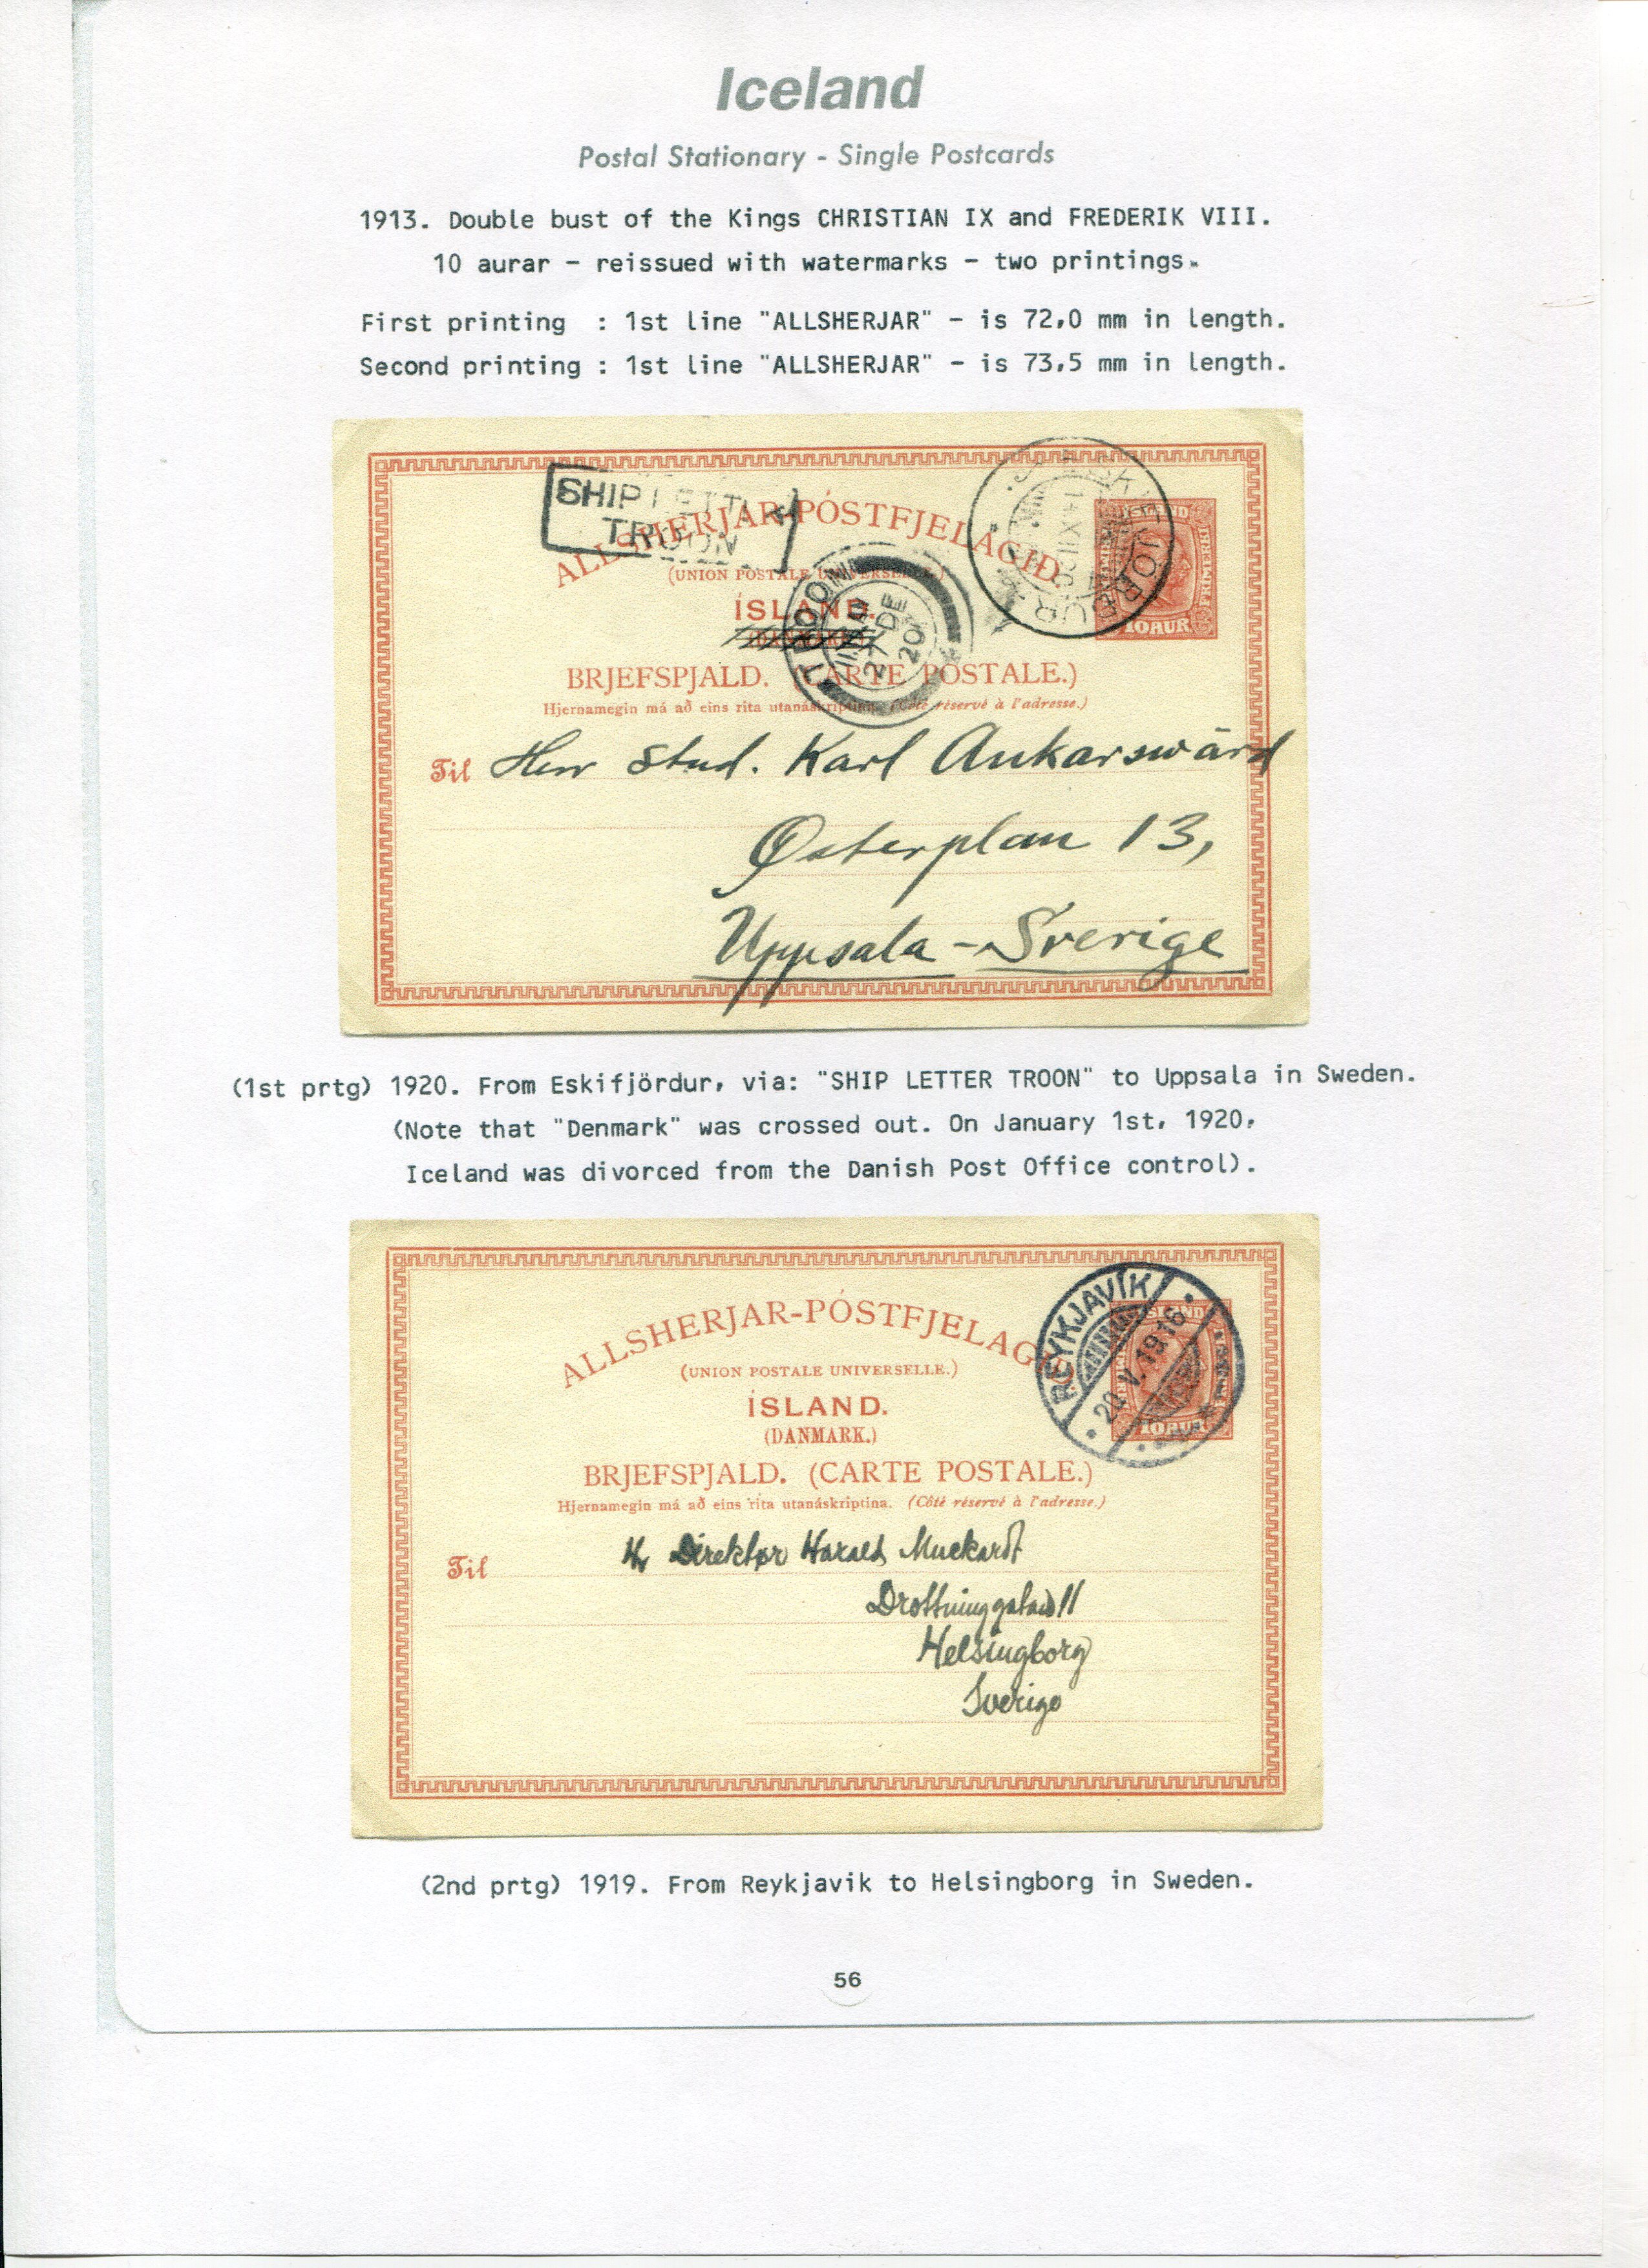 Iceland
Postal Stationary - Single Postcards
1913. Double bust of the Kings CHRISTIAN IX and FREDERIK VIII.
10 aurar - reissued with watermarks - two printings.
First printing : 1st line "ALLSHERJAR" - is 72,0 mm in length.
Second printing : 1st line "ALLSHERJAR" - is 73,5 mm in length.
SHIP LETTER
TROON
ALLSHERJAR-PÓSTFJELAGIÐ.
(UNION POSTALE UNIVERSELLE.)
ÍSLAND.
(DANMARK.)
LONDON
27 DE
20
ÍSLAND
10 AUR
BRJEFSPJALD. (CARTE POSTALE.)
Hjernamegin má að eins rita utanáskriptina. (Côté réservé à l'adresse.)
Til Herr Stud. Karl Ankarswärd
Østerplan 13,
Uppsala - Sverige
(1st prtg) 1920. From Eskifjördur, via: "SHIP LETTER TROON" to Uppsala in Sweden.
(Note that "Denmark" was crossed out. On January 1st, 1920,
Iceland was divorced from the Danish Post Office control).
ALLSHERJAR-PÓSTFJELAG
(UNION POSTALE UNIVERSELLE.)
ÍSLAND.
(DANMARK.)
REYKJAVÍK
20.V.1916
ÍSLAND
10 AUR
BRJEFSPJALD. (CARTE POSTALE.)
Hjernamegin má að eins rita utanáskriptina. (Côté réservé à l'adresse.)
Til Hr Direktør Harald Muckardt
Drottninggatan 11
Helsingborg
Sverige
(2nd prtg) 1919. From Reykjavik to Helsingborg in Sweden.
56